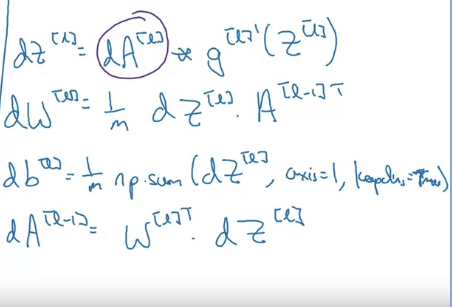 dZ^[l] = dA^[l] * g^[l]'(Z^[l])
dW^[l] = 1/m dZ^[l] · A^[l-1]T
db^[l] = 1/m np.sum(dZ^[l], axis=1, keepdims=True)
dA^[l-1] = W^[l]T · dZ^[l]